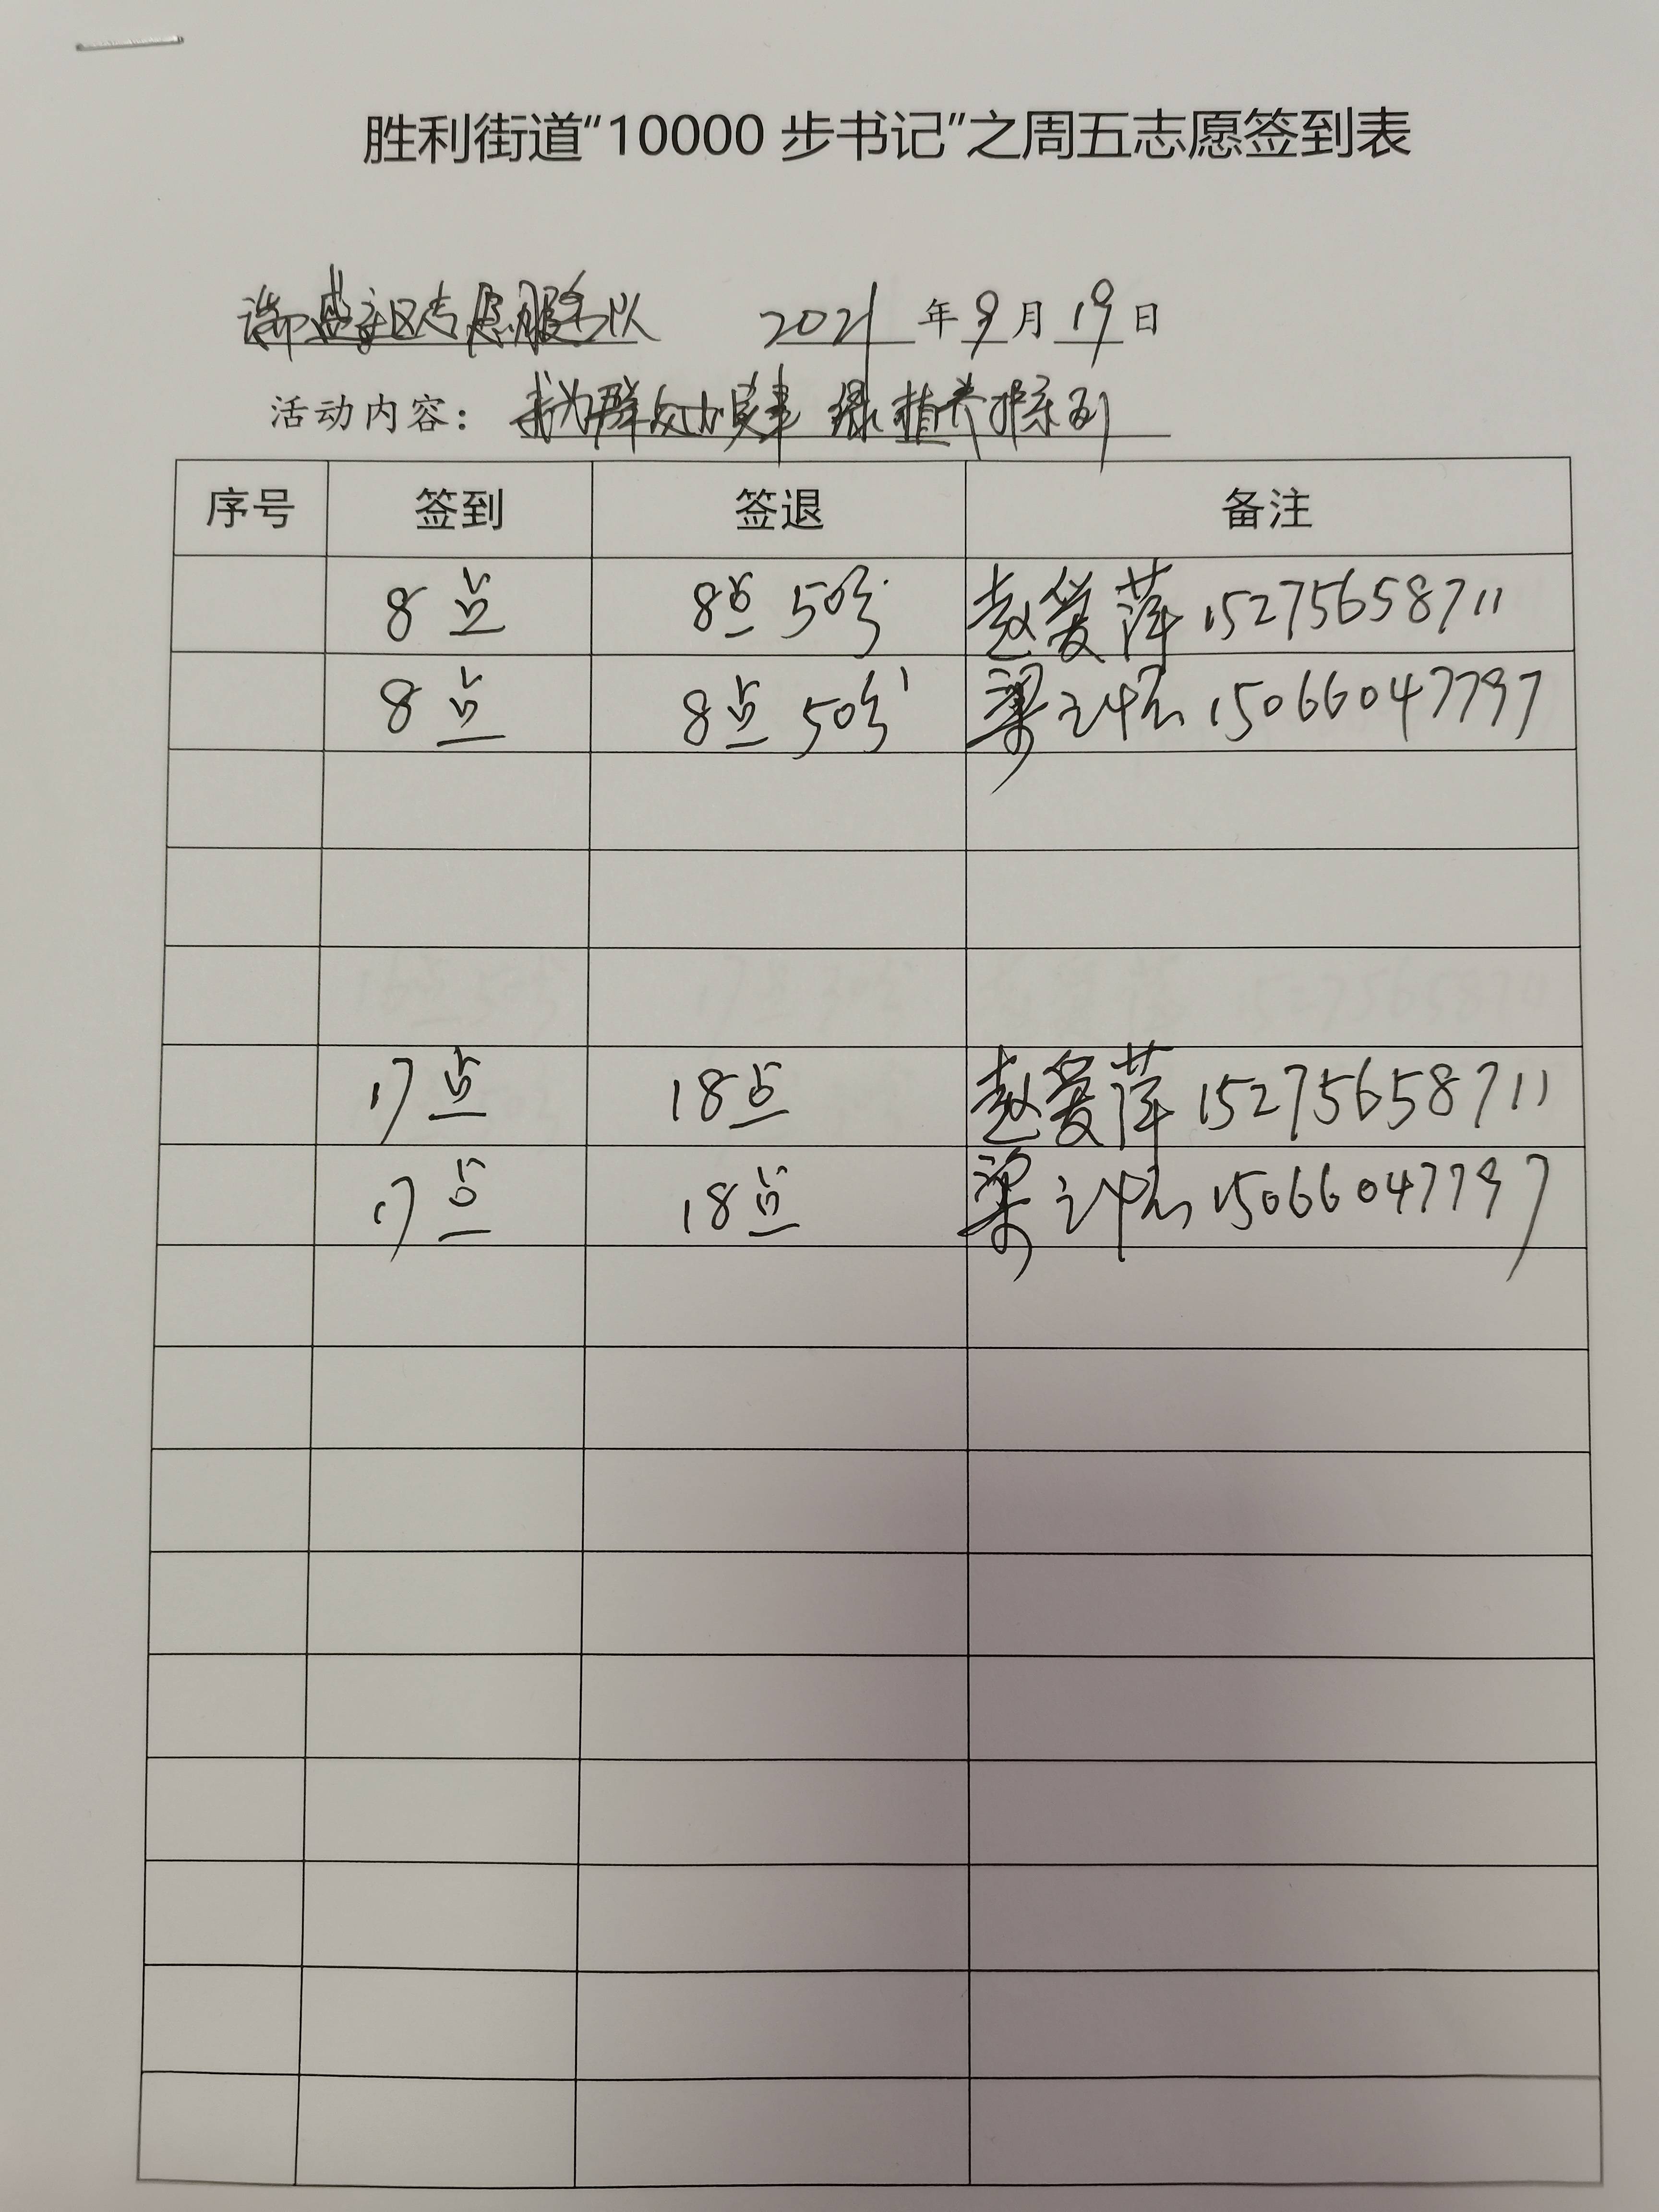 胜利街道“10000 步书记”之周五志愿签到表
盛社区志愿服务队 2021 年 9 月 19 日
活动内容： 我为群众办实事 绿植养护系列
序号 签到 签退 备注
8点 8点50分 赵爱萍 15275658711
8点 8点50分 梁 15066047797
17点 18点 赵爱萍 15275658711
17点 18点 梁 15066047797